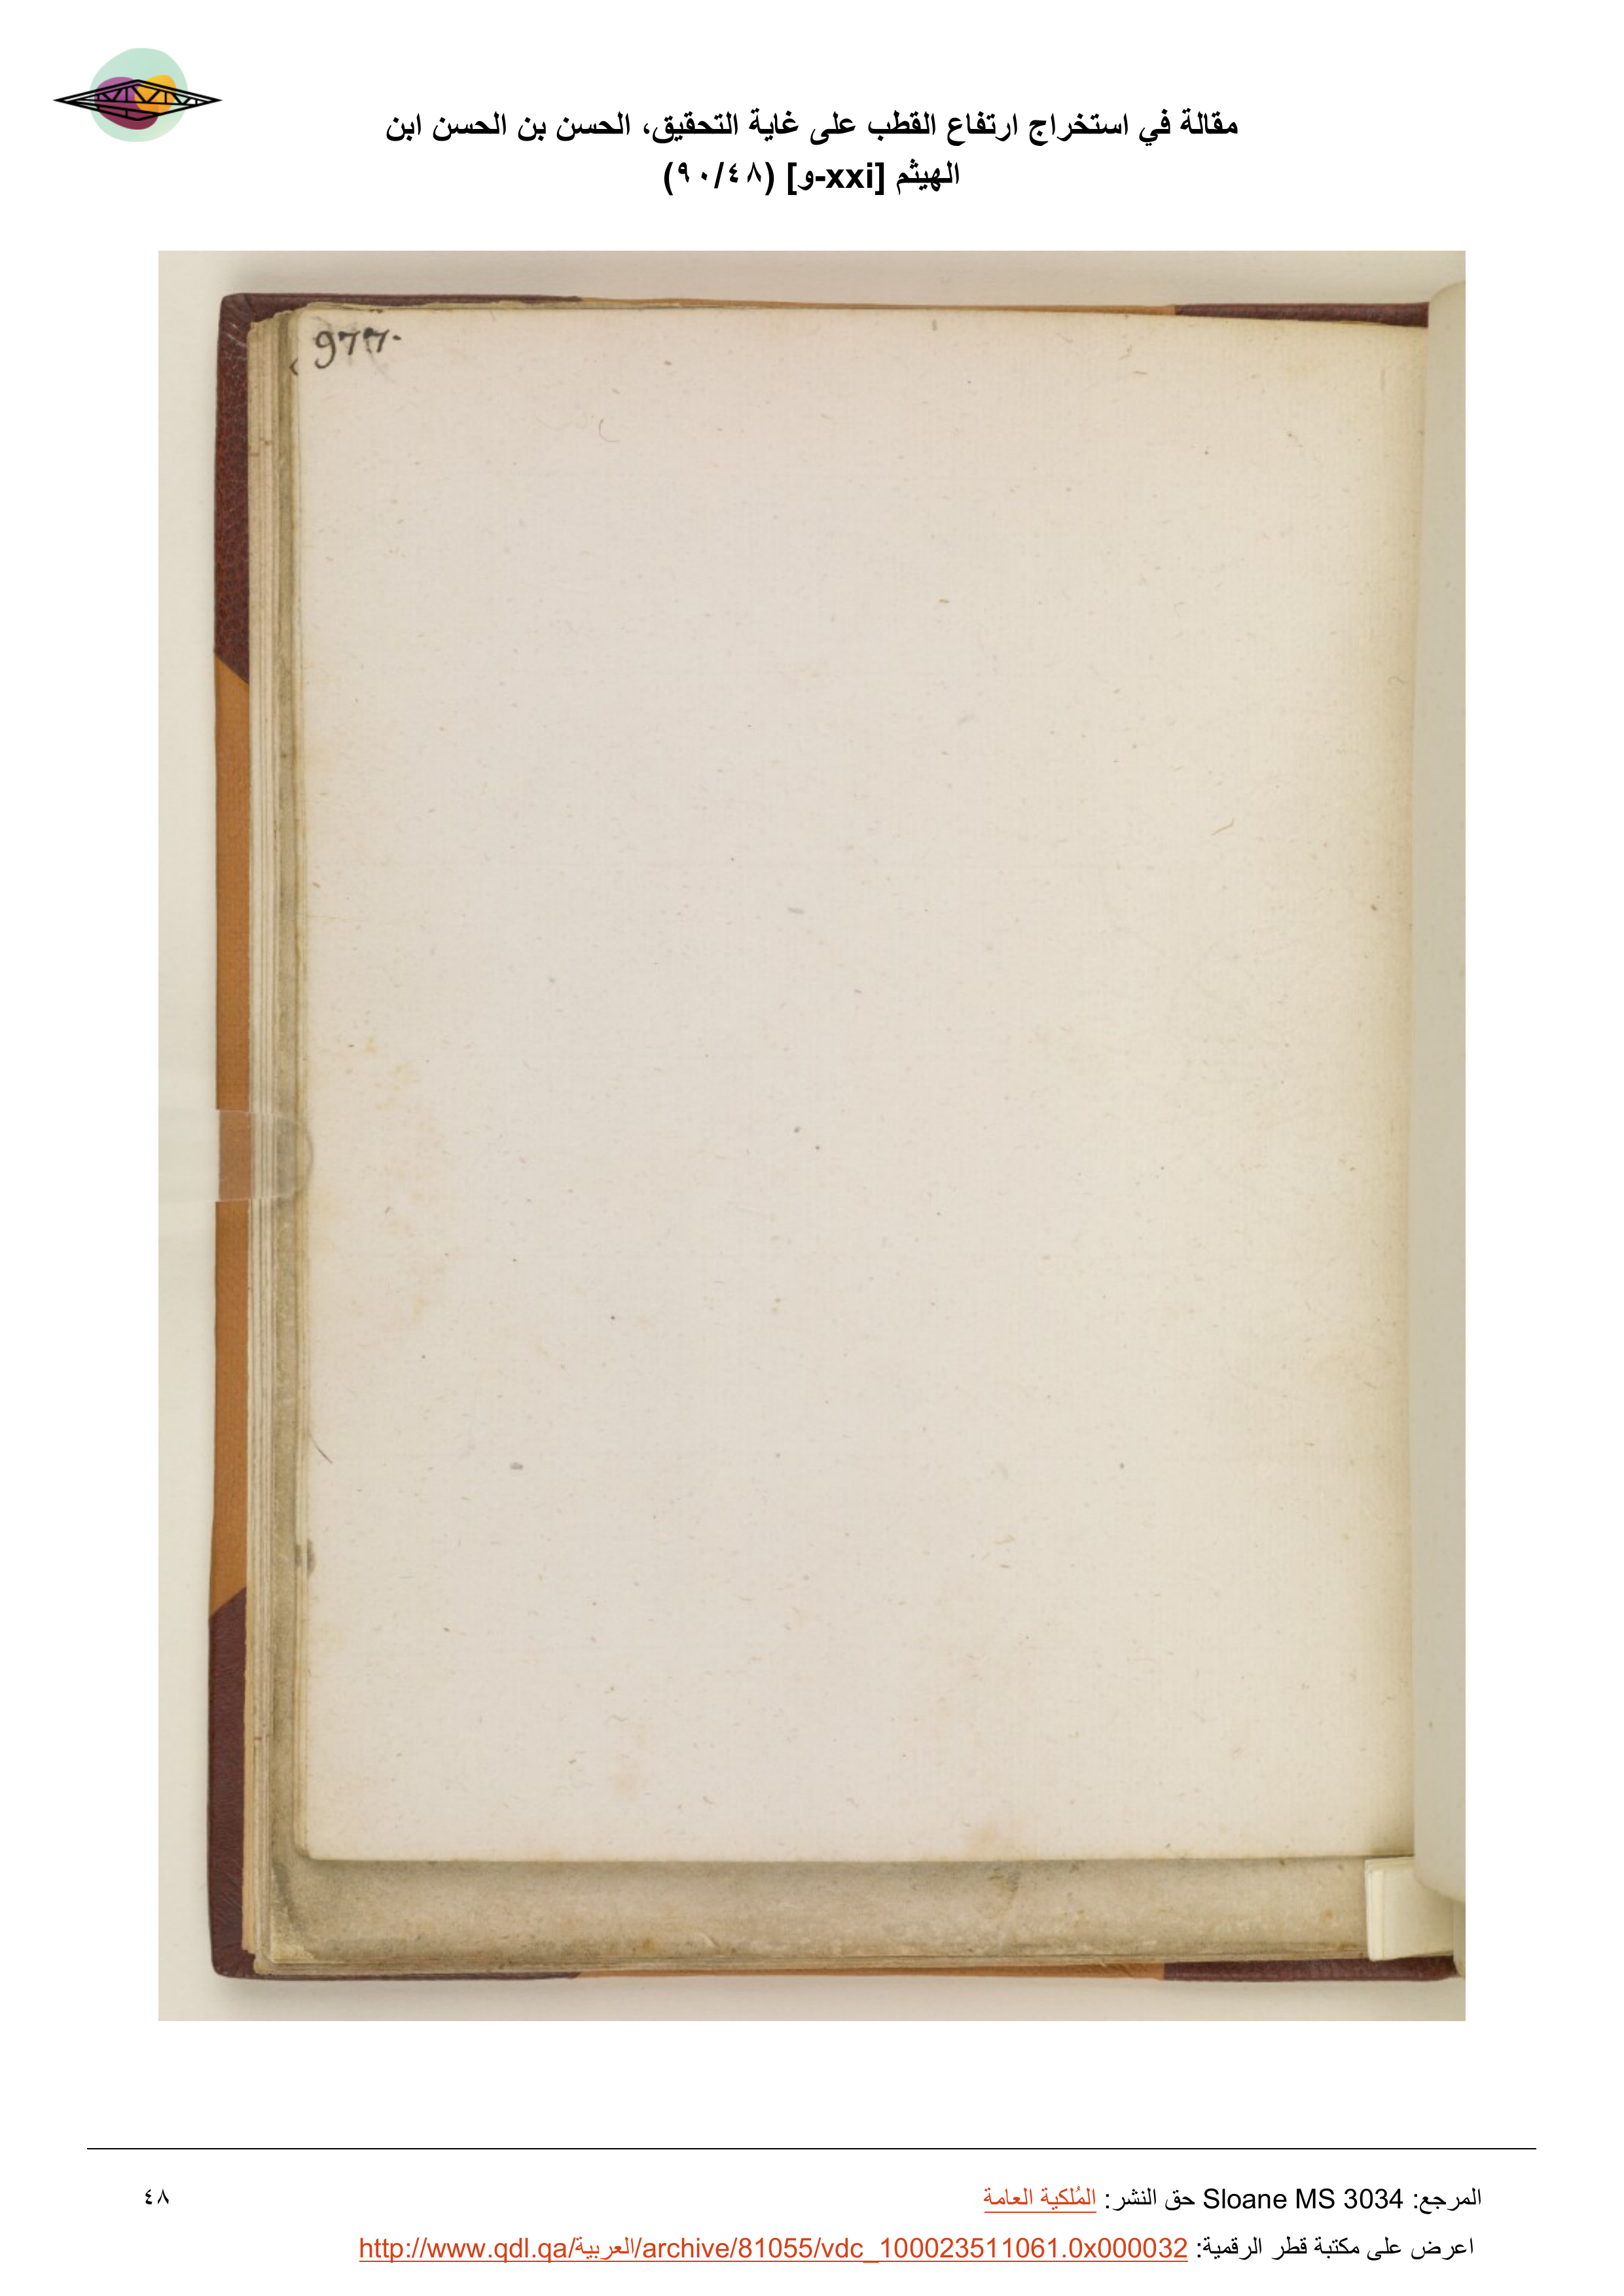 مقالة في استخراج ارتفاع القطب على غاية التحقيق، الحسن بن الحسن ابن
الهيثم [xxi-و] (٩٠/٤٨)
977.
المرجع: Sloane MS 3034 حق النشر: المُلكية العامة
٤٨
اعرض على مكتبة قطر الرقمية: http://www.qdl.qa/العربية/archive/81055/vdc_100023511061.0x000032